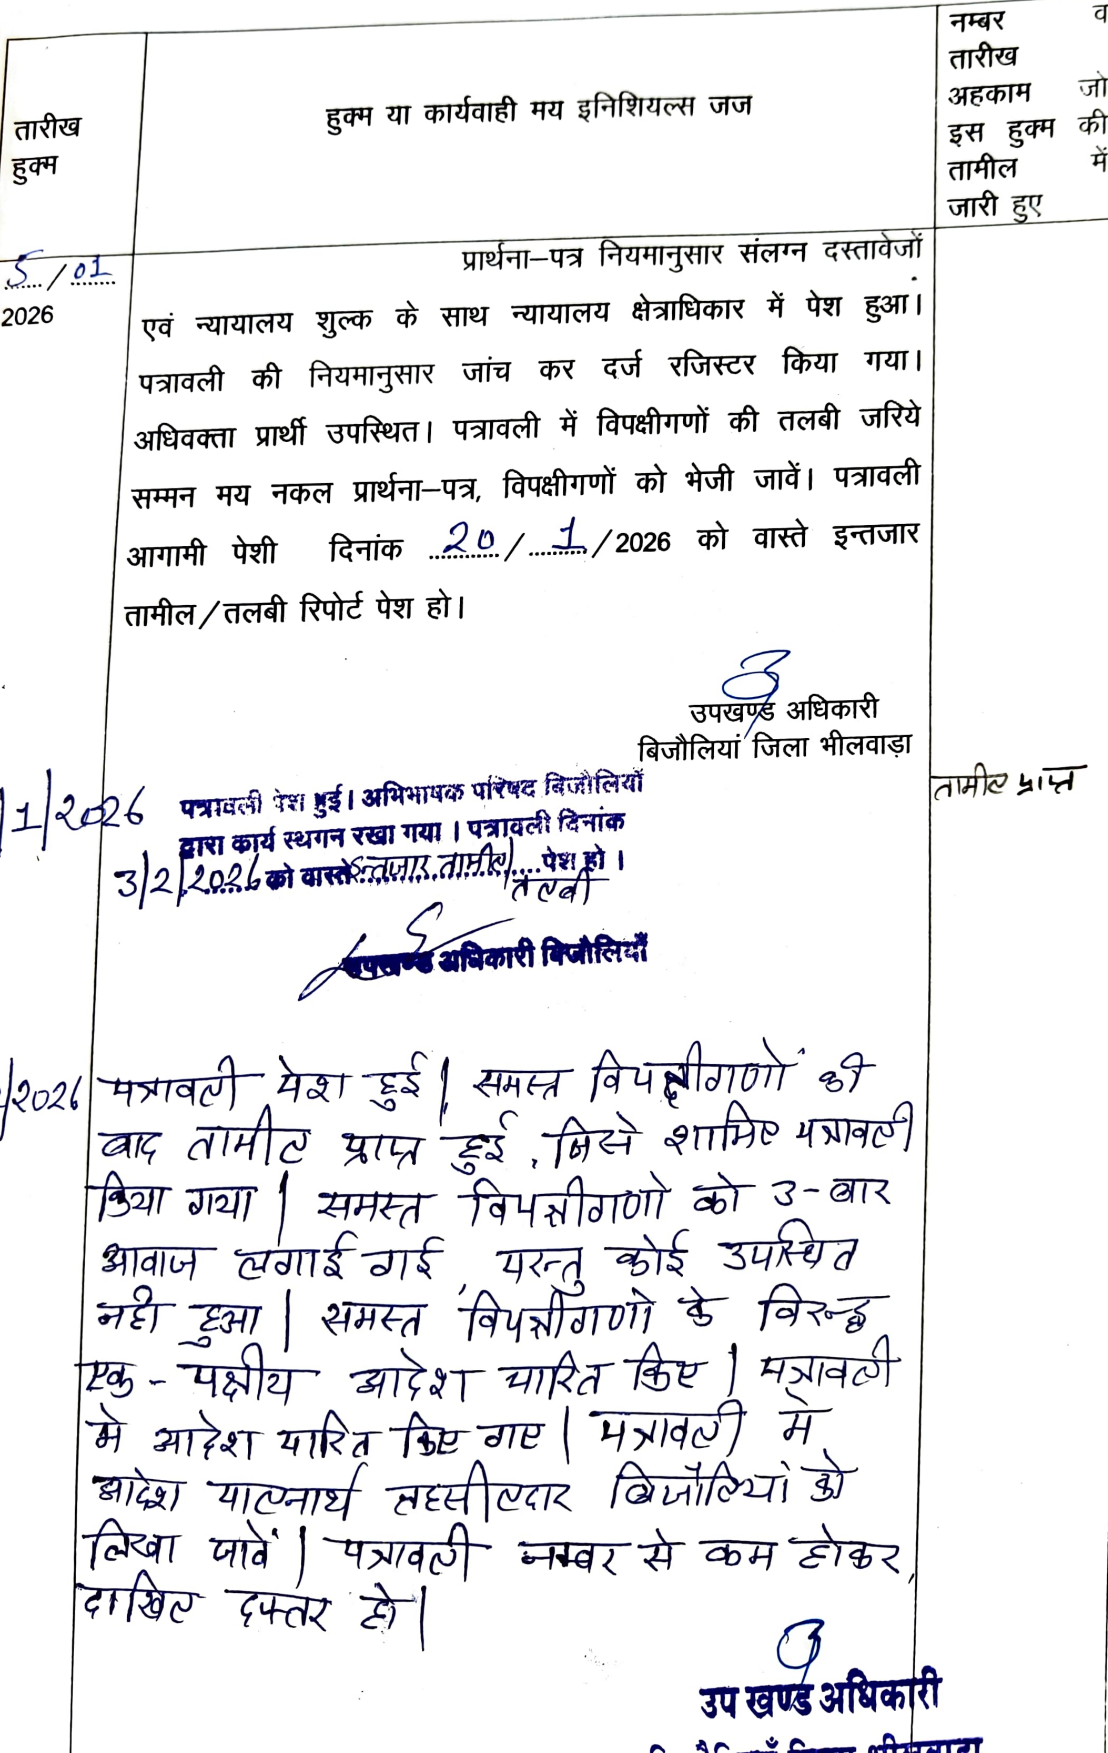 तारीख
हुक्म
हुक्म या कार्यवाही मय इनिशियल्स जज
नम्बर व
तारीख
अहकाम जो
इस हुक्म की
तामील में
जारी हुए
5/01
2026
प्रार्थना–पत्र नियमानुसार संलग्न दस्तावेजों
एवं न्यायालय शुल्क के साथ न्यायालय क्षेत्राधिकार में पेश हुआ।
पत्रावली की नियमानुसार जांच कर दर्ज रजिस्टर किया गया।
अधिवक्ता प्रार्थी उपस्थित। पत्रावली में विपक्षीगणों की तलबी जरिये
सम्मन मय नकल प्रार्थना–पत्र, विपक्षीगणों को भेजी जावें। पत्रावली
आगामी पेशी दिनांक 20/1/2026 को वास्ते इन्तजार
तामील/तलबी रिपोर्ट पेश हो।
उपखण्ड अधिकारी
बिजौलियां जिला भीलवाड़ा
तामील प्राप्त
/1/2026
पत्रावली पेश हुई। अभिभाषक परिषद बिजौलियाँ
द्वारा कार्य स्थगन रखा गया। पत्रावली दिनांक
3/2/2026 को वास्ते इन्तजार तामील/ पेश हो।
तलबी
उपखण्ड अधिकारी बिजौलियाँ
/2026
पत्रावली पेश हुई। समस्त विपक्षीगणों की
बाद तामील प्राप्त हुई, जिसे शामिल पत्रावली
किया गया। समस्त विपक्षीगणो को 3-बार
आवाज लगाई गई, परन्तु कोई उपस्थित
नही हुआ। समस्त विपक्षीगणो के विरुद्ध
एक-पक्षीय आदेश पारित किए। पत्रावली
मे आदेश पारित किए गए। पत्रावली मे
आदेश पालनार्थ तहसीलदार बिजौलियां को
लिखा जावें। पत्रावली नम्बर से कम होकर,
दाखिल दफ्तर हो।
उप खण्ड अधिकारी